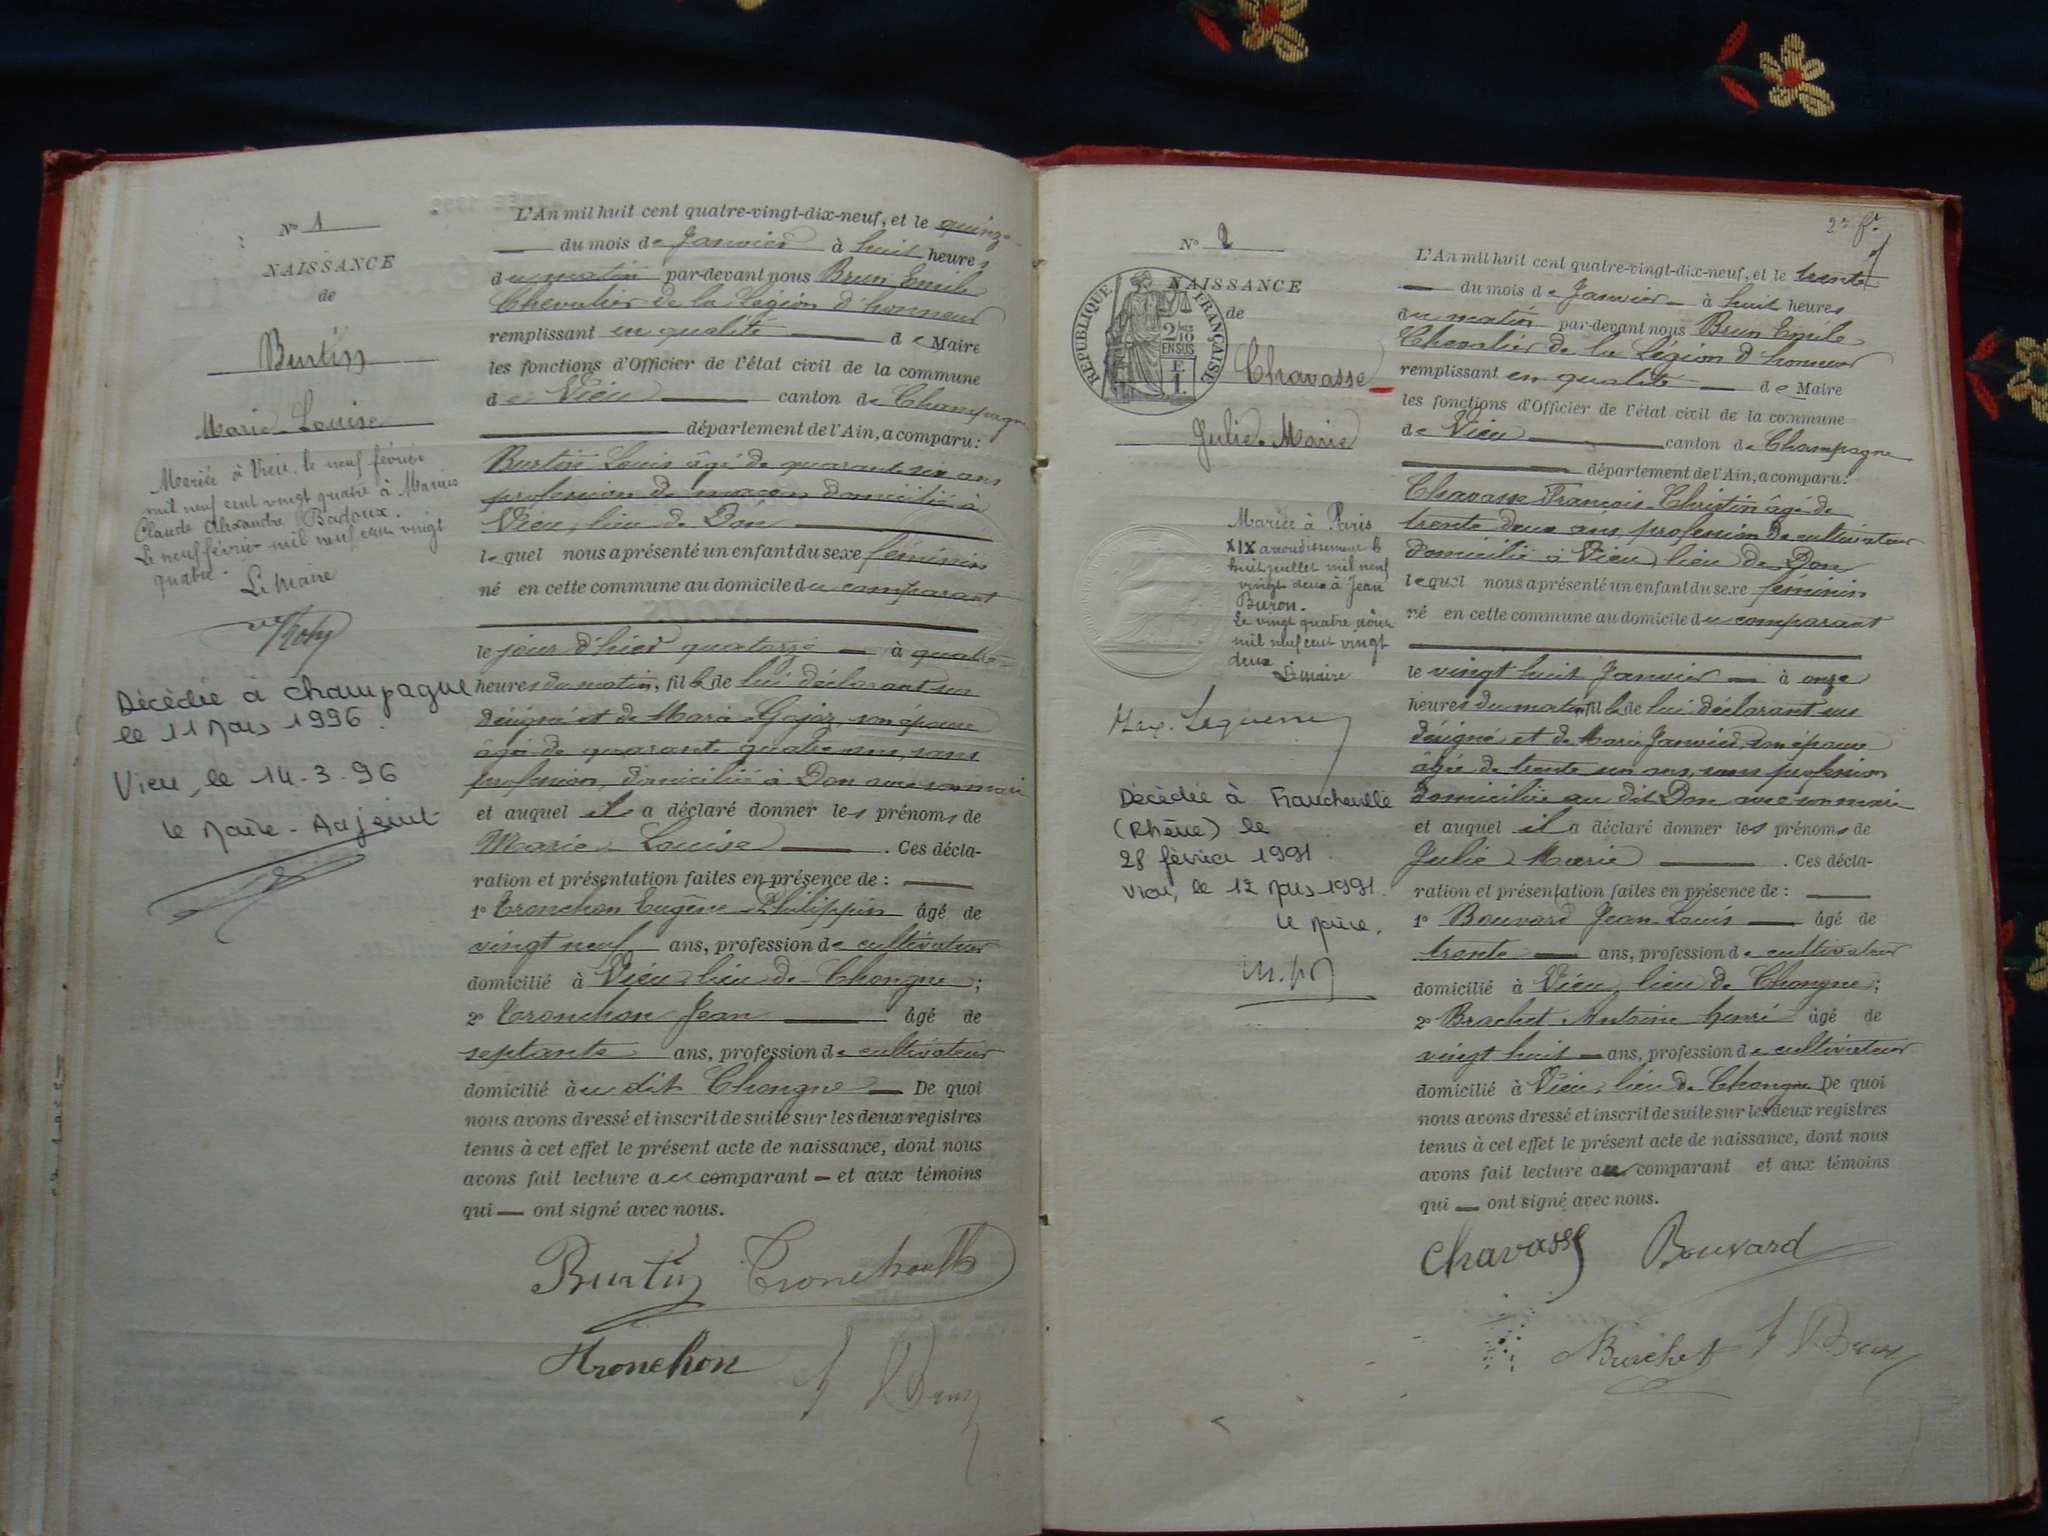 N° 1
NAISSANCE
de
Burtin
Marie Louise
Mariée à Vieu, le neuf février
mil neuf cent vingt quatre à Marius
Claude Alexandre Badoux.
Le neuf février mil neuf cent vingt
quatre.
Le Maire
Décédée à Champagne
le 11 Mars 1996.
Vieu, le 14-3-96
Le Maire-Adjoint
L'An mil huit cent quatre-vingt-dix-neuf, et le quinze
du mois de Janvier à huit heures
du matin par-devant nous Brun Emile
Chevalier de la Légion d'honneur
remplissant en qualité de Maire
les fonctions d'Officier de l'état civil de la commune
de Vieu canton de Champagne
département de l'Ain, a comparu:
Burtin Louis âgé de quarante six ans
profession de maçon domicilié à
Vieu, lieu de Don
lequel nous a présenté un enfant du sexe féminin
né en cette commune au domicile du comparant
le jour d'hier quatorze à quatre
heures du matin, fille de lui déclarant sus
désigné et de Marie son épouse
âgée de quarante quatre ans, sans
profession, domiciliée à Don avec son mari
et auquel il a déclaré donner les prénoms de
Marie Louise . Ces décla-
ration et présentation faites en présence de :
1° Tronchon Eugène Philippin âgé de
vingt neuf ans, profession de cultivateur
domicilié à Vieu, lieu de Chongne ;
2° Tronchon Jean âgé de
septante ans, profession de cultivateur
domicilié au dit Chongne De quoi
nous avons dressé et inscrit de suite sur les deux registres
tenus à cet effet le présent acte de naissance, dont nous
avons fait lecture au comparant et aux témoins
qui ont signé avec nous.
Burtin Tronchon
Tronchon E Brun
2e ft
N° 2
NAISSANCE
de
RÉPUBLIQUE FRANÇAISE
2/10 EN SUS
F. 1.
Chavasse
Julie Marie
Mariée à Paris
XIX arrondissement le
huit juillet mil neuf
vingt deux à Jean
Buron.
Le vingt quatre août
mil neuf cent vingt
deux
Le Maire
Décédée à Francheville
(Rhône) le
28 février 1991.
Vieu, le 12 Mars 1991.
Le Maire.
L'An mil huit cent quatre-vingt-dix-neuf, et le trente
du mois de Janvier à huit heures
du matin par-devant nous Brun Emile
Chevalier de la Légion d'honneur
remplissant en qualité de Maire
les fonctions d'Officier de l'état civil de la commune
de Vieu canton de Champagne
département de l'Ain, a comparu:
Chavasse François Christin âgé de
trente deux ans, profession de cultivateur
domicilié à Vieu, lieu de Don
lequel nous a présenté un enfant du sexe féminin
né en cette commune au domicile du comparant
le vingt huit Janvier à onze
heures du matin fille de lui déclarant sus
désigné et de Marie Janvier, son épouse
âgée de trente un ans, sans profession
domiciliée au dit Don avec son mari
et auquel il a déclaré donner les prénoms de
Julie Marie . Ces décla-
ration et présentation faites en présence de :
1° Bouvard Jean Louis âgé de
trente ans, profession de cultivateur
domicilié à Vieu, lieu de Chongne ;
2° Brachet Antoine Henri âgé de
vingt huit ans, profession de cultivateur
domicilié à Vieu, lieu de Chongne De quoi
nous avons dressé et inscrit de suite sur les deux registres
tenus à cet effet le présent acte de naissance, dont nous
avons fait lecture au comparant et aux témoins
qui ont signé avec nous.
Chavasse Bouvard
Brachet E Brun